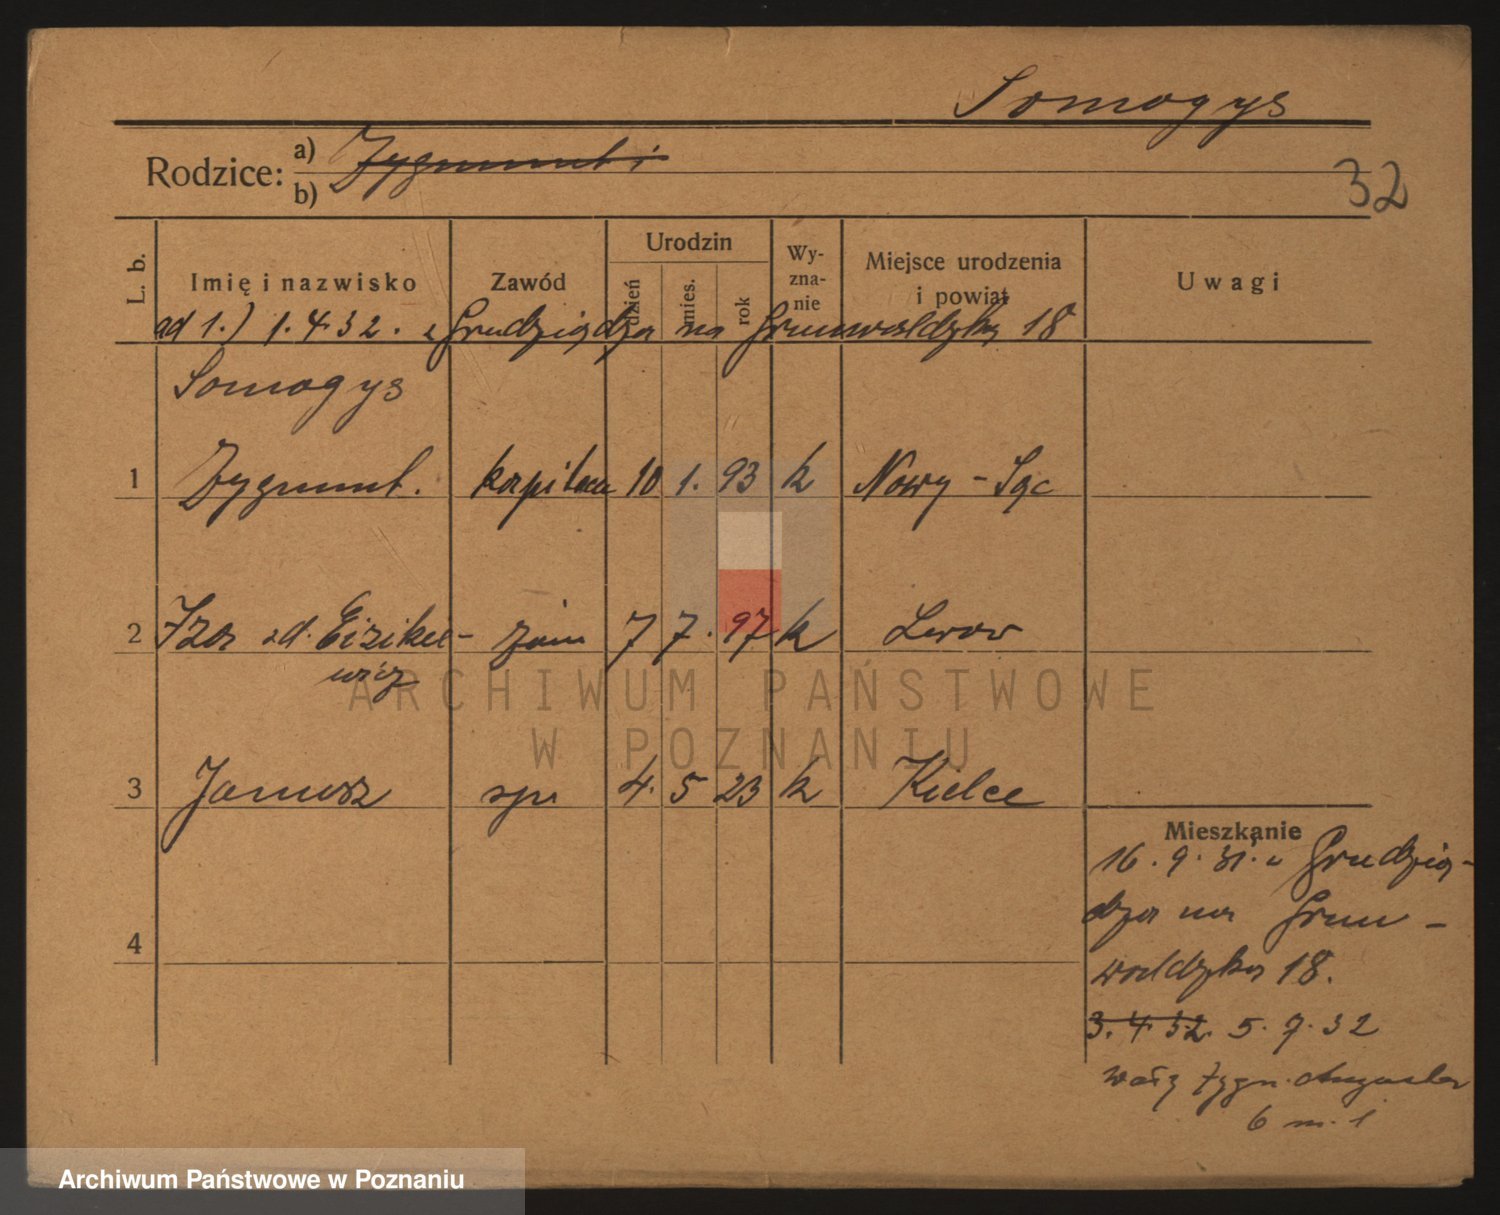 Somogys
Rodzice: a) Zygmunt i
b)
32
L. b. Imię i nazwisko Zawód Urodzin dzień mies. rok Wyznanie Miejsce urodzenia i powiat Uwagi
ad 1.) 1.4.32. z Grudziądza na Grunwaldzką 18
Somogys
1 Zygmunt. kapitan 10 1. 93 k Nowy-Sącz
2 Iza zd. Eizikie- żona 7 7. 97 k Lwow
wicz
3 Janusz syn 4. 5 23 k Kielce
4
Mieszkanie
16.9.31. z Grudzią-
dza na Grun-
waldzką 18.
3.4.32. 5.7.32
wały Zygm. Augusta
6 m. 1
ARCHIWUM PAŃSTWOWE
W POZNANIU
Archiwum Państwowe w Poznaniu